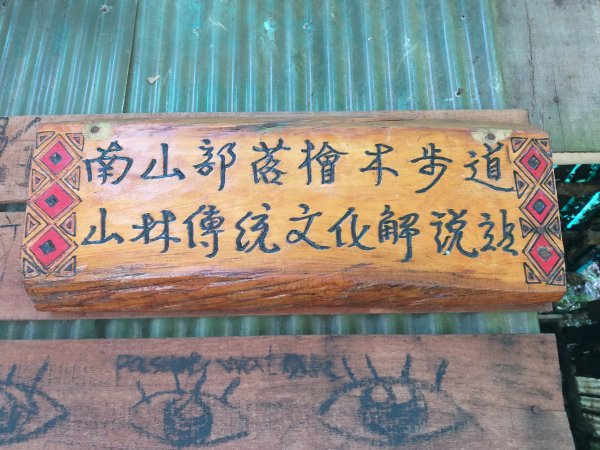 南山部落檜木步道
山林傳統文化解說站